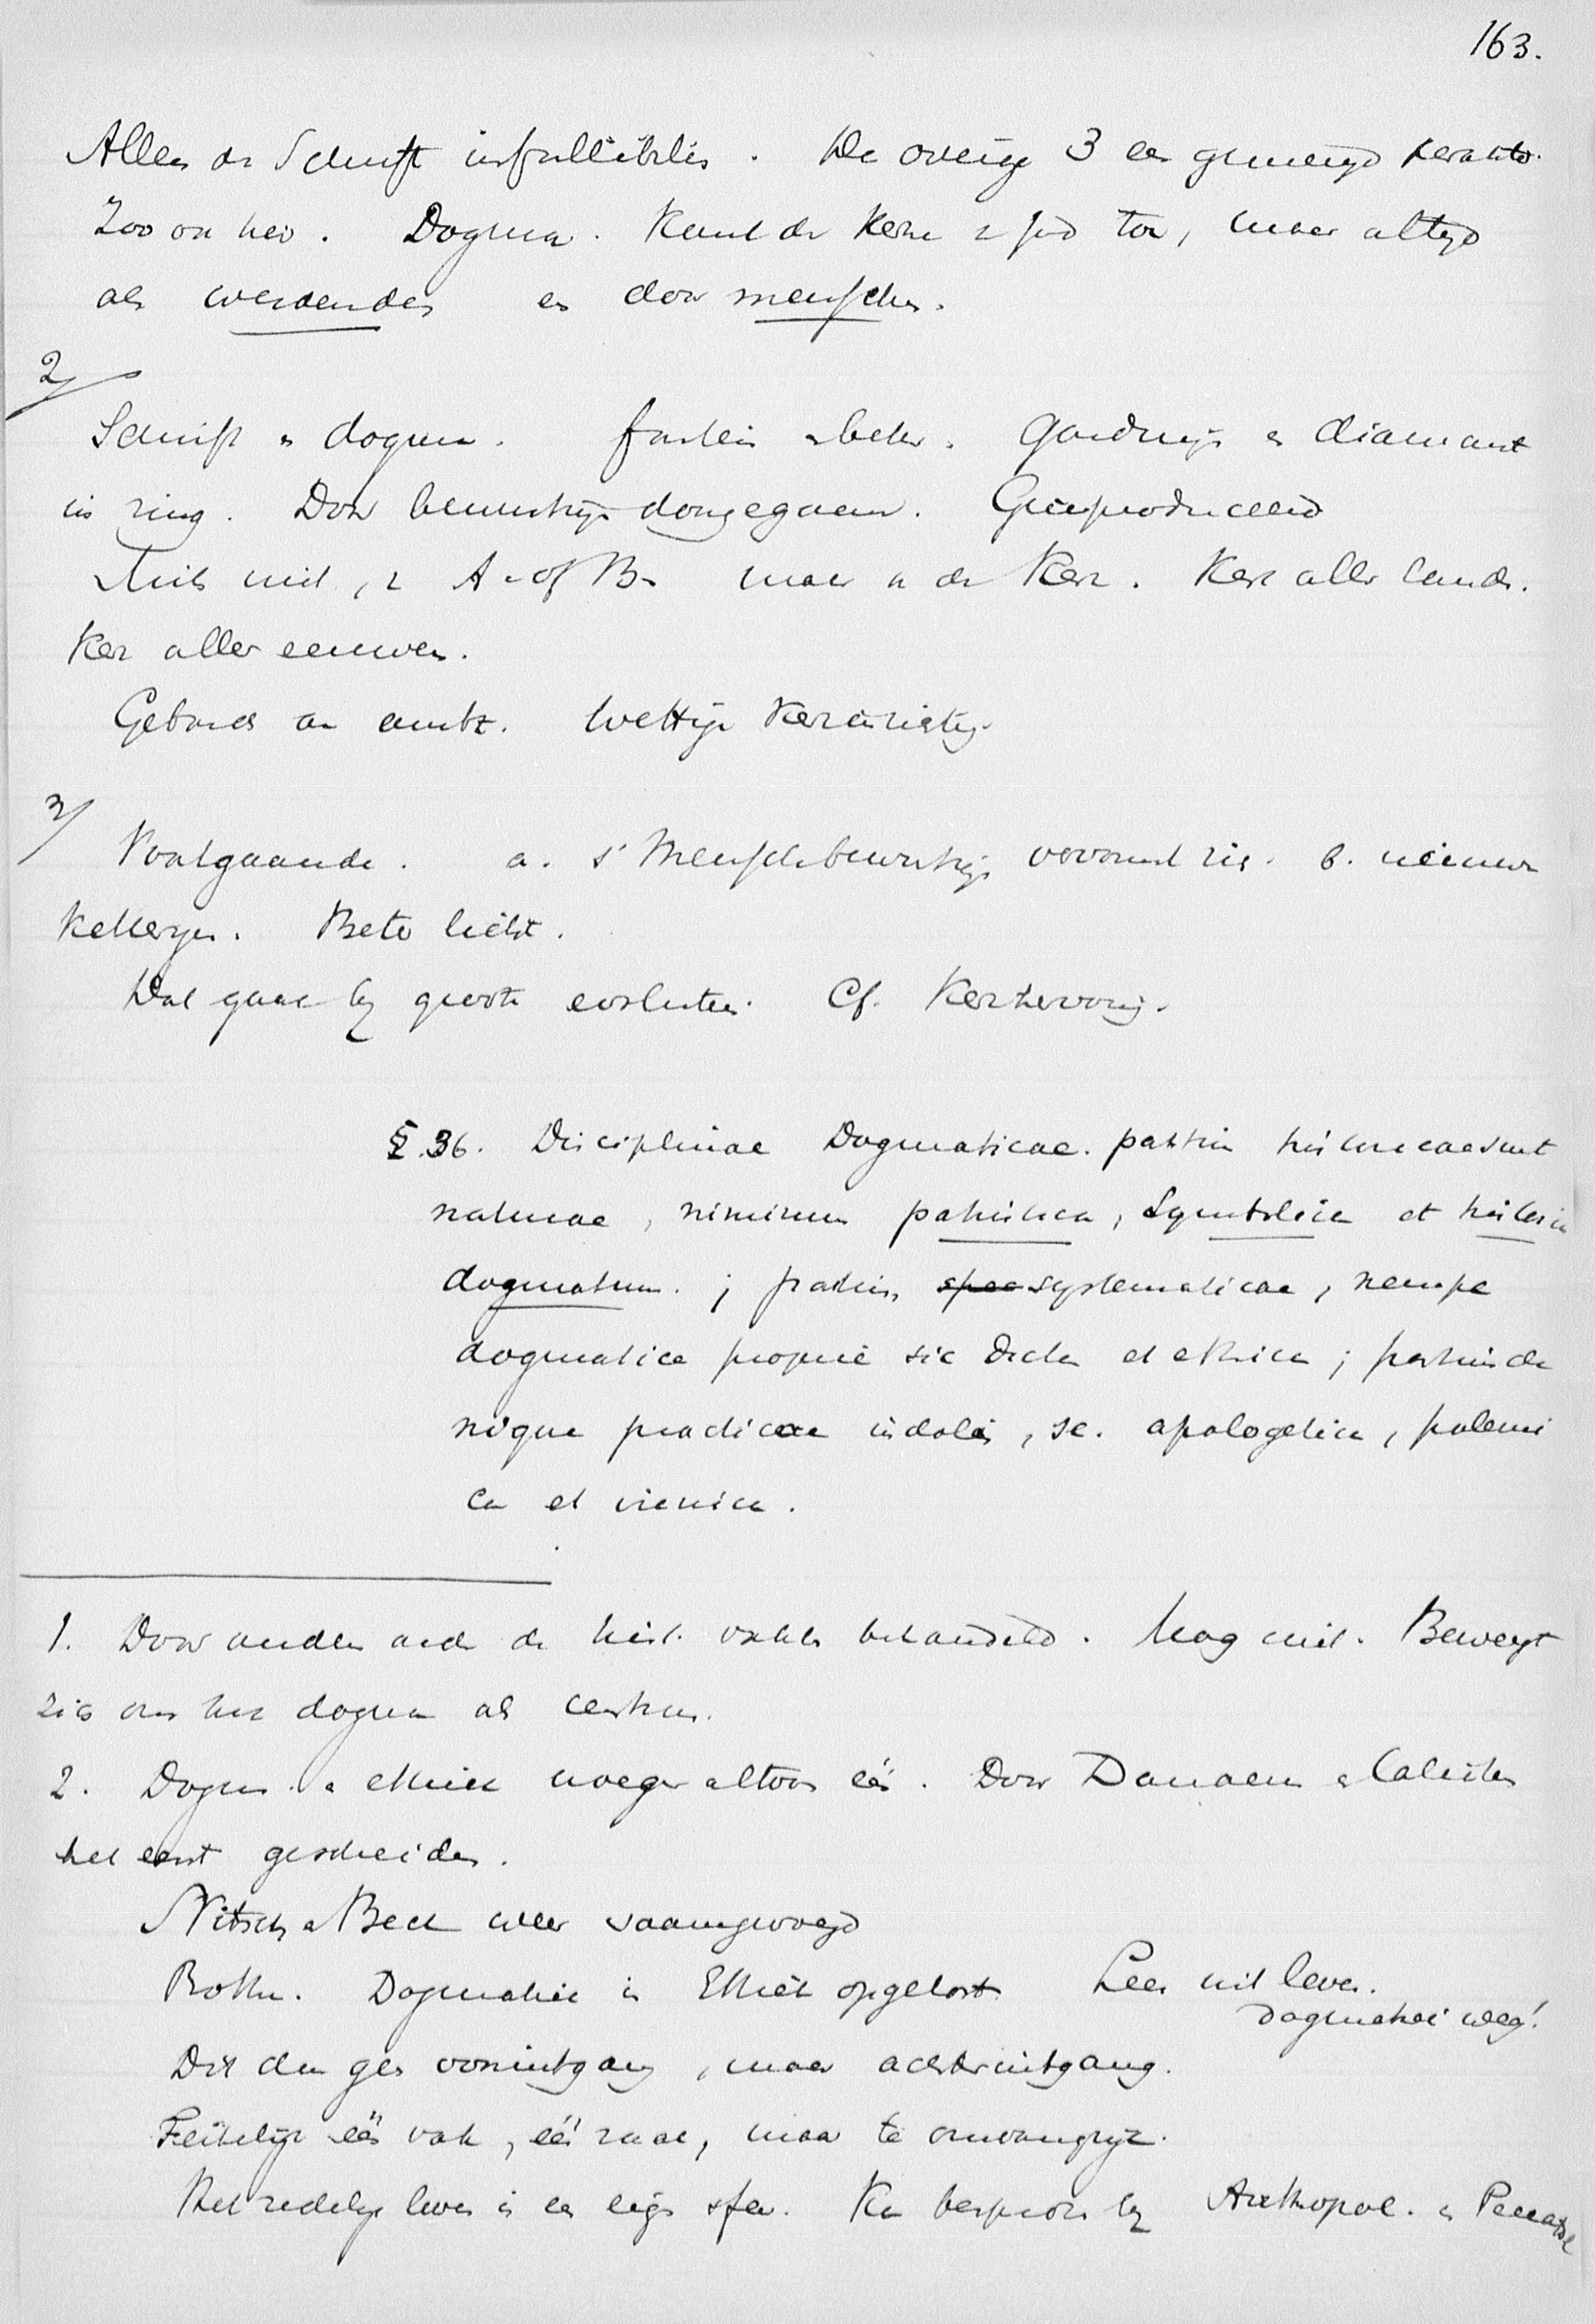 163.
Alleen de Schrift infallibilis. De overige 3 een gemengd karakter.
Zoo ook hier. Dogma. Komt de Kerk toe, maar altijd
als werdendes en door menschen.
2/
Schrift en dogma. en beker. Goudmijn en diamant
in ring. Door bewustzijn doorgegaan. Gereproduceerd
niet, A of B maar de Kerk. Kerk aller landen.
Kerk aller eeuwen.
Gebonden aan ambt. Wettige Kerkinrichting.
3/
Voortgaande. a. 's Menschbewustzijn vervormt zich. b. nieuwe
Ketterijen. Beter licht.
Dat gaat bij groote Cf. Kerkhervorming.
§.36. Disciplinae Dogmaticae. partim historicae sunt
naturae, nimirum patristica, Symbolica et historia
dogmatum.; partim systematicae, nempe
dogmatica proprie sic dicta et ethica; partim de
nique practicae indolis, sc. apologetica, polemi
ca et irenica.
1. Door anderen de hist. vakken behandeld. Mag niet. Beweegt
zich om het dogma als centrum.
2. Dogm. en ethiek vroeger altoos één. Door Danaeus en Calixtus
het eerst gescheiden.
Nitzsch en Beck weer saamgevoegd
Rothe. Dogmatiek in Ethiek opgelost. Leer uit leven.
Dogmatiek weg!
Dit dan geen vooruitgang, maar achteruitgang.
Feitelijk één vak, één zaak, maar te omvangrijk.
Het zedelijk leven is een eigen sfeer. Kan besproken bij Anthropol. en